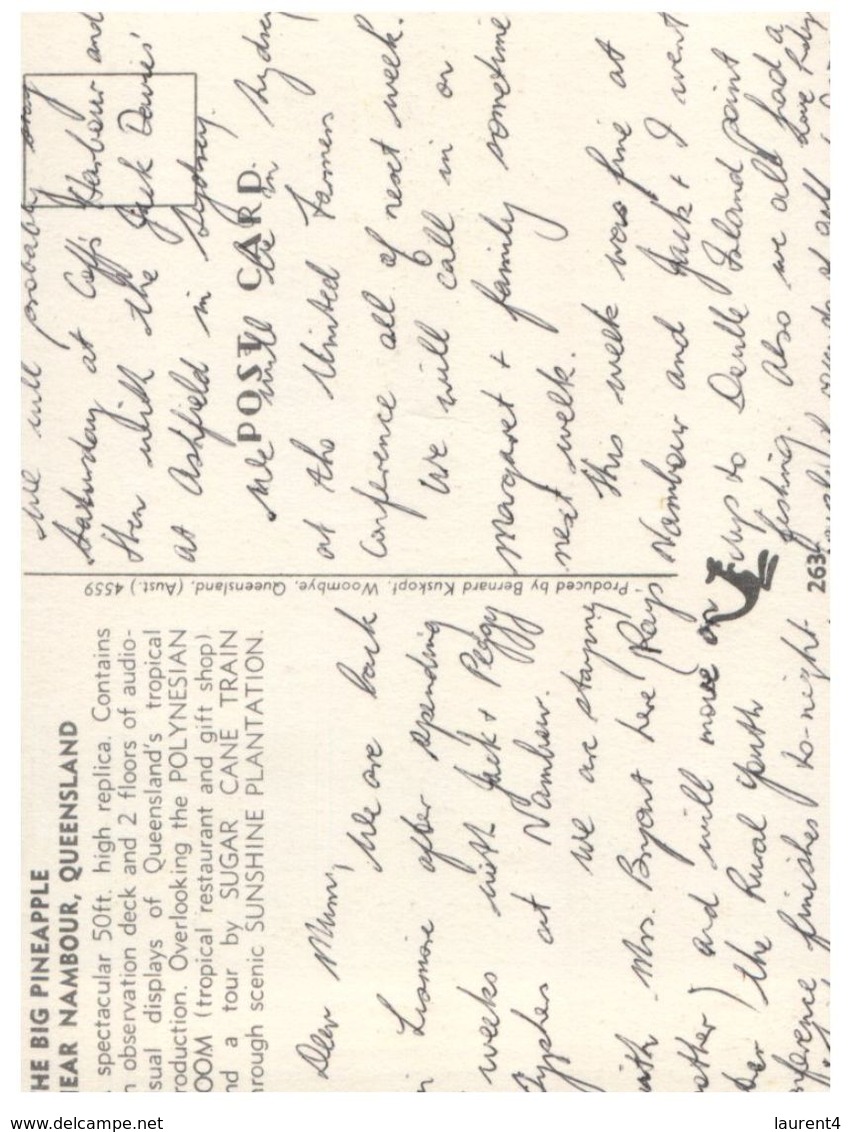 HE BIG PINEAPPLE
EAR NAMBOUR, QUEENSLAND
spectacular 50ft. high replica. Contains
n observation deck and 2 floors of audio-
sual displays of Queensland's tropical
roduction. Overlooking the POLYNESIAN
OOM (tropical restaurant and gift shop)
nd a tour by SUGAR CANE TRAIN
hrough scenic SUNSHINE PLANTATION.
Dear Mum,
We are back
n Lismore after spending
weeks with Jack & Peggy
at Nambour.
we are staying
with Mrs. Bryant here (Rays
other) and will move on
the Rural Youth
nference finishes to-night.
Produced by Bernard Kuskopf, Woombye, Queensland, (Aust.) 4559
POST CARD
263
We will probably stay
Saturday at Coffs Harbour and
then with the Jack Davies'
at Ashfield in Sydney.
We will be in Sydney
at the United Farmers
Conference all of next week.
We will call in on
Margaret & family sometime
next week.
This week was fine at
Nambour and Jack & I went
up to Double Island point
fishing. Also we all had a
www.delcampe.net
laurent4